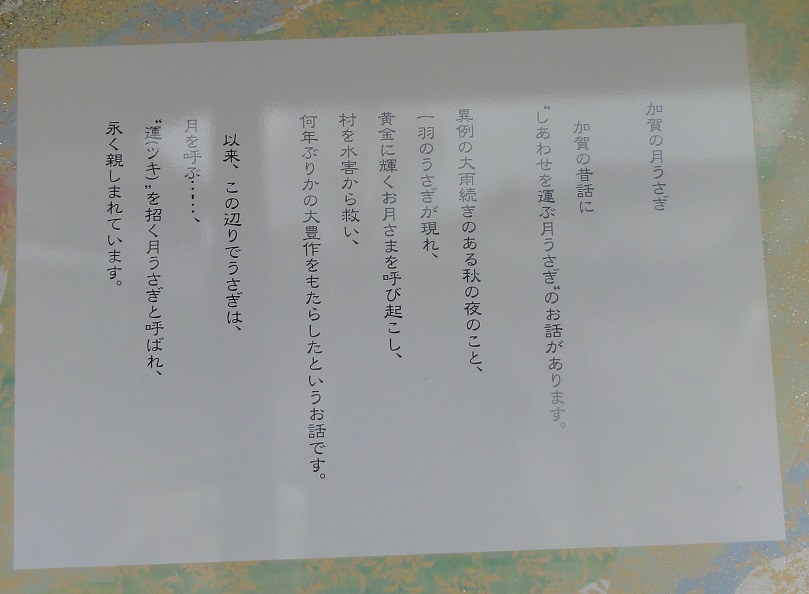 加賀の月うさぎ
加賀の昔話に
“しあわせを運ぶ月うさぎ“のお話があります。
異例の大雨続きのある秋の夜のこと、
一羽のうさぎが現れ、
黄金に輝くお月さまを呼び起こし、
村を水害から救い、
何年ぶりかの大豊作をもたらしたというお話です。
以来、この辺りでうさぎは、
月を呼ぶ……、
“運(ツキ)”を招く月うさぎと呼ばれ、
永く親しまれています。